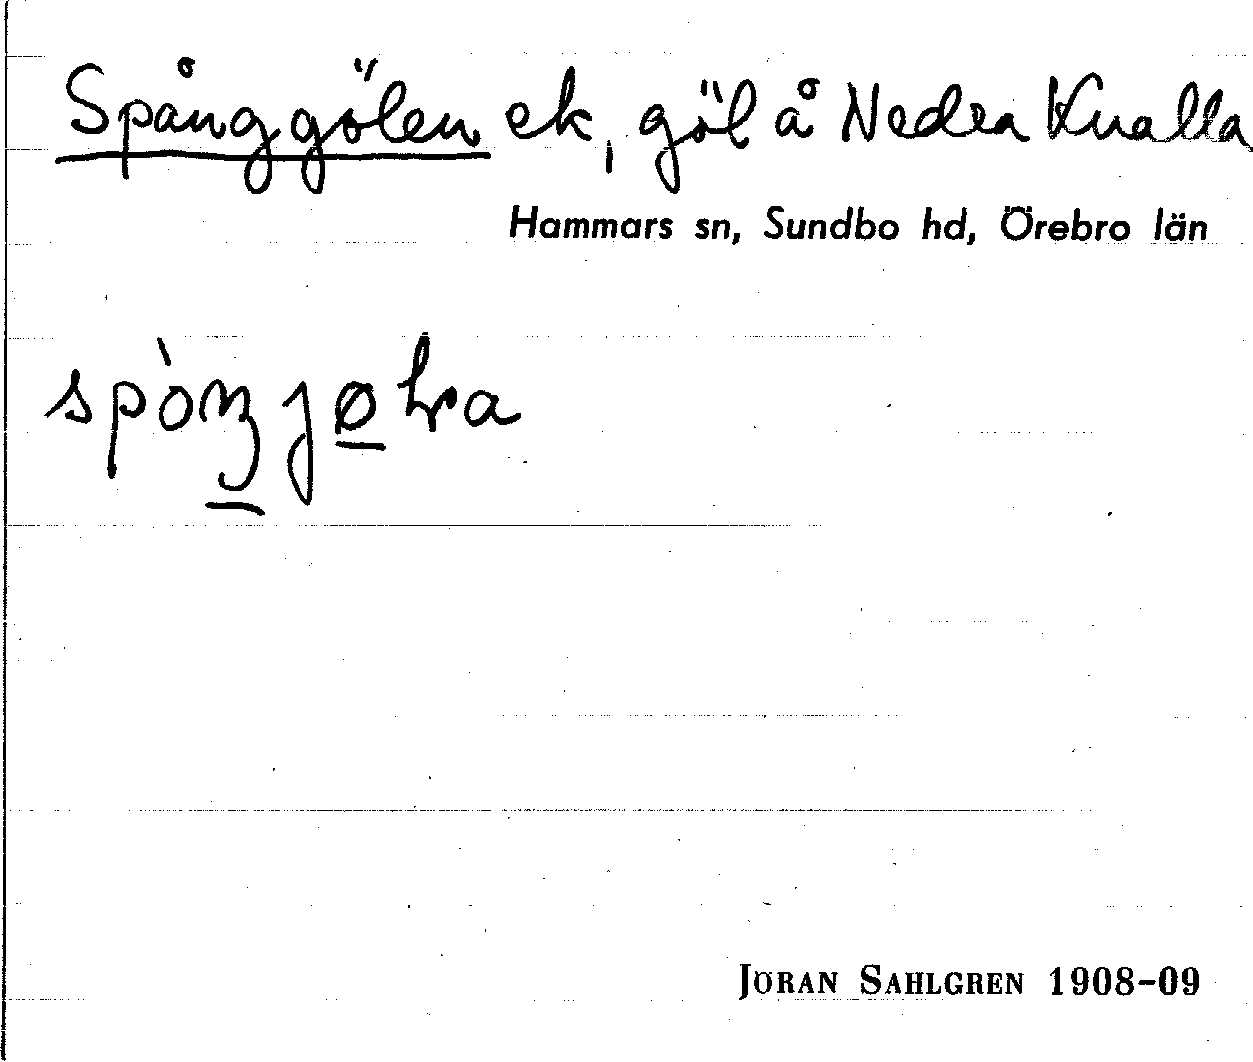 Spånggölen ek, göl å Nedra Knalla
Hammars sn, Sundbo hd, Örebro län
JÖRAN SAHLGREN 1908-09